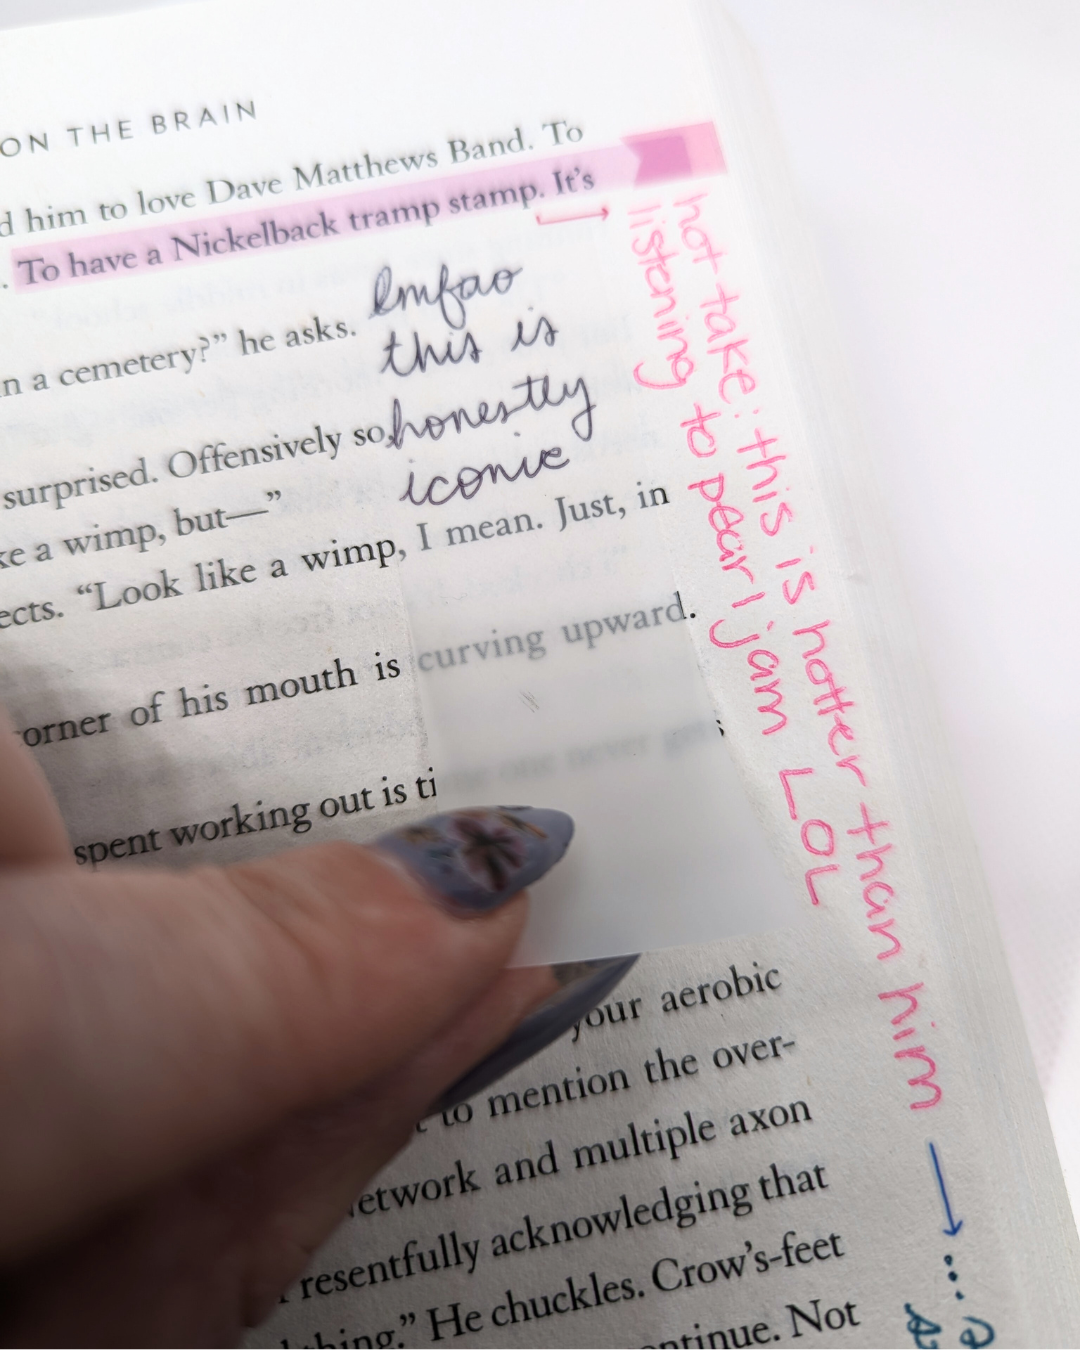 ON THE BRAIN
d him to love Dave Matthews Band. To
. To have a Nickelback tramp stamp. It's
lmfao
this is
honestly
iconic
n a cemetery?" he asks.
surprised. Offensively so,
ke a wimp, but—"
ects. "Look like a wimp, I mean. Just, in
orner of his mouth is curving upward.
spent working out is ti
one never get
your aerobic
to mention the over-
etwork and multiple axon
resentfully acknowledging that
thing." He chuckles. Crow's-feet
ontinue. Not
hot take: this is hotter than him
listening to pearl jam LOL